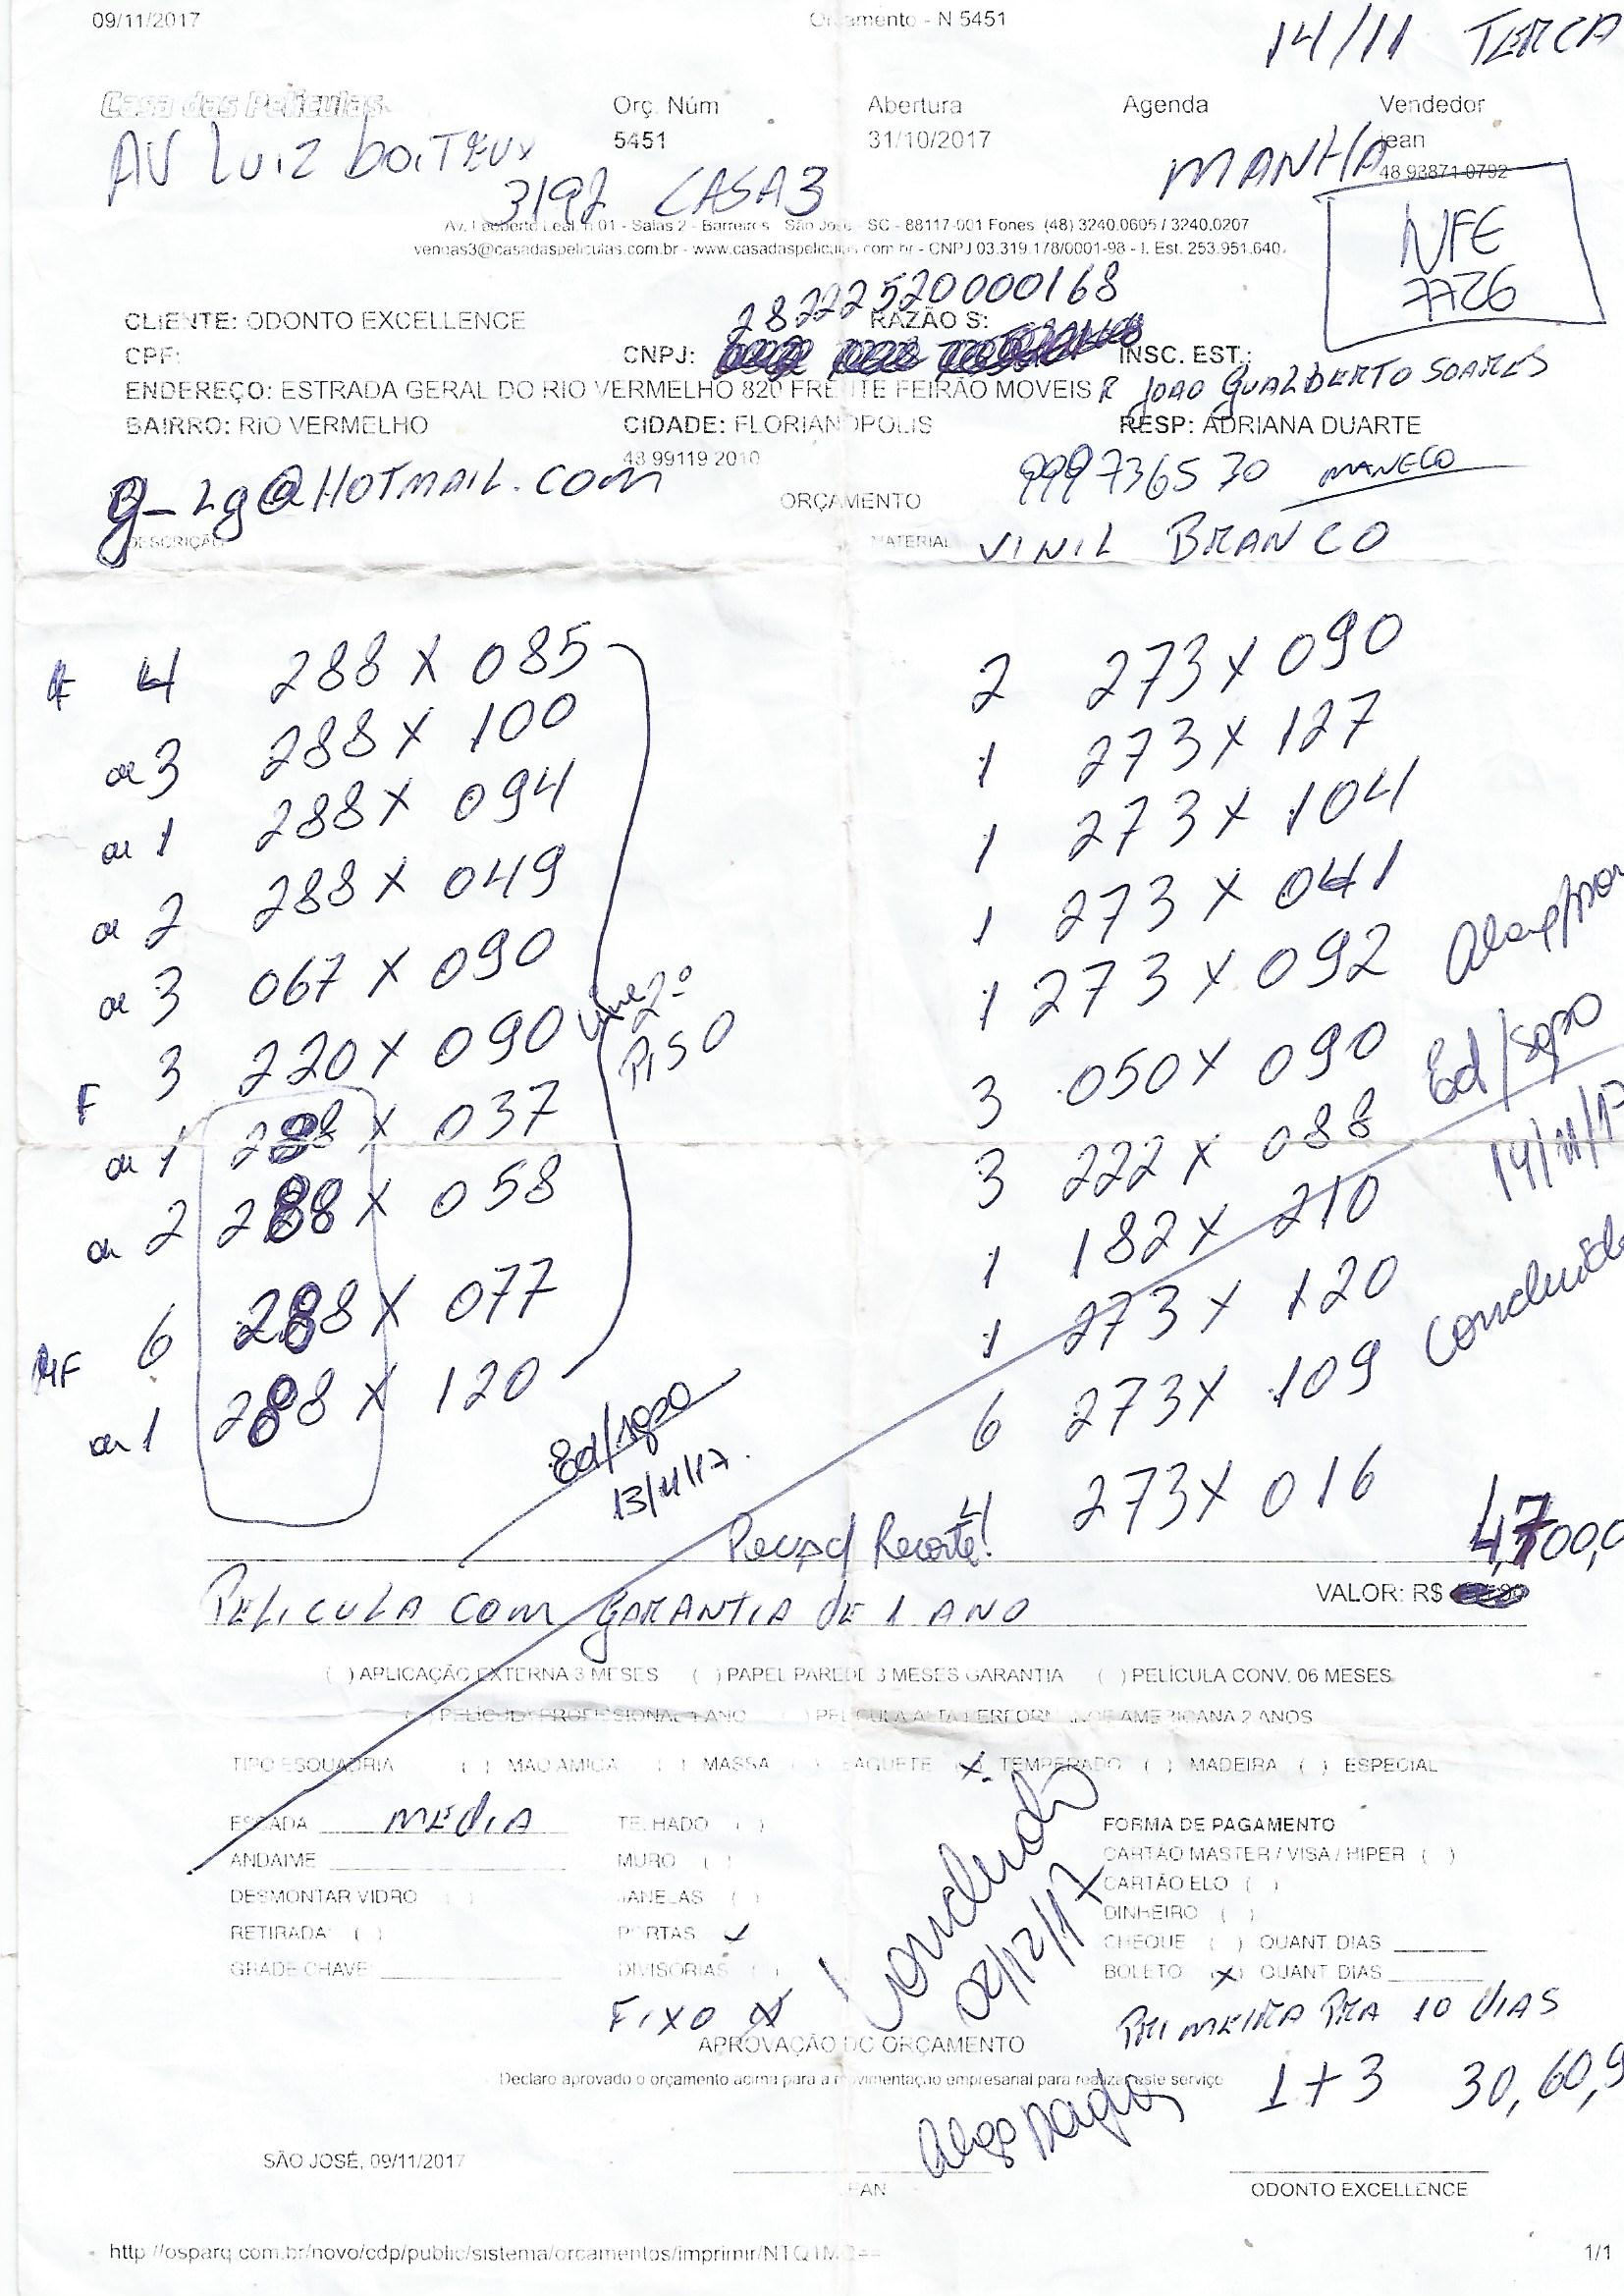 09/11/2017 Orçamento - N 5451
14/11 TERCA
Casa das Películas Orç. Núm Abertura Agenda Vendedor
5451 31/10/2017 jean
AV LUIZ BOITEUX MANHA 48 98871-0792
3192 CASA 3
Salas 2 - Barreiros - São José - SC - 88117-001 Fones: (48) 3240.0605 / 3240.0207
vendas3@casadaspeliculas.com.br - www.casadaspeliculas.com.br - CNPJ 03.319.178/0001-98 - I. Est. 253.951.640.
NFE
7726
28222520000168
CLIENTE: ODONTO EXCELLENCE RAZÃO S:
CPF: CNPJ: INSC. EST.:
ENDEREÇO: ESTRADA GERAL DO RIO VERMELHO 820 FRENTE FEIRÃO MOVEIS R JOAO GUALBERTO SOARES
BAIRRO: RIO VERMELHO CIDADE: FLORIANOPOLIS RESP: ADRIANA DUARTE
48 99119 2010 999736530 MANECO
g_lg@HOTMAIL.COM ORÇAMENTO
DESCRIÇÃO MATERIAL VINIL BRANCO
F 4 288 X 085 2 273 X 090
3 288 X 100 1 273 X 127
1 288 X 094 1 273 X 104
2 288 X 049 1 273 X 041
3 067 X 090 1 273 X 092
F 3 220 X 090 2º PISO 3 050 X 090 Ed/
1 288 X 037 3 222 X 088 14/11/17
2 288 X 058 1 182 X 210
MF 6 288 X 077 1 273 X 120
1 288 X 120 6 273 X 109
Ed/ 4 273 X 016
13/11/17.
Recorte! 4,700,0
VALOR: R$
PELICULA COM GARANTIA DE 1 ANO
( ) APLICAÇÃO EXTERNA 3 MESES ( ) PAPEL PAREDE 3 MESES GARANTIA ( ) PELÍCULA CONV. 06 MESES
( ) PELÍCULA PROFISSIONAL 1 ANO ( ) PELICULA ALTA PERFORMANCE AMERICANA 2 ANOS
TIPO ESQUADRIA ( ) MAO AMIGA ( ) MASSA ( ) BAGUETE (X) TEMPERADO ( ) MADEIRA ( ) ESPECIAL
ESCADA MEDIA TELHADO ( ) FORMA DE PAGAMENTO
ANDAIME MURO ( ) CARTÃO MASTER / VISA / HIPER ( )
DESMONTAR VIDRO ( ) JANELAS ( ) CARTÃO ELO ( )
RETIRADA ( ) PORTAS ✓ DINHEIRO ( )
GRADE CHAVE DIVISORIAS ( ) CHEQUE ( ) QUANT. DIAS
BOLETO (X) QUANT. DIAS
Concluido
02/12/17
FIXO X PRIMEIRA PRA 10 DIAS
APROVAÇÃO DO ORÇAMENTO
1+3 30, 60, 9
Declaro aprovado o orçamento acima para a movimentação empresarial para realizar este serviço
SÃO JOSÉ, 09/11/2017
ODONTO EXCELLENCE
http://osparq.com.br/novo/cdp/public/sistema/orcamentos/imprimir/NTQ1MQ== 1/1